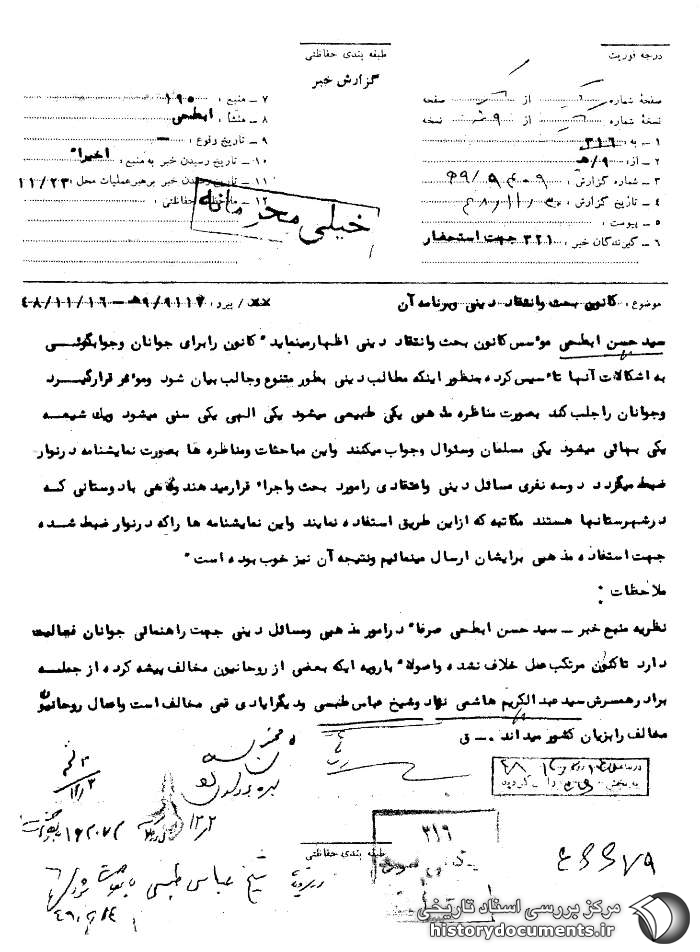 طبقه بندی حفاظتی
گزارش خبر
درجه فوریت
صفحهٔ شماره از صفحه
نسخهٔ شماره از نسخه
۱ - به : ۳۱۶
۲ - از : ۹/ﻫ
۳ - شماره گزارش :
۴ - تاریخ گزارش :
۵ - پیوست :
۶ - گیرندگان خبر : ۳۲۱ جهت استحضار
۷ - منبع : ۱۹۰
۸ - منشأ : ابطحی
۹ - تاریخ وقوع : –
۱۰ - تاریخ رسیدن خبر به منبع : اخیرا"
۱۱ - تاریخ رسیدن خبر برهبر عملیات محل : ۱۱/۲۳
۱۲ - ملاحظات حفاظتی :
خیلی محرمانه
موضوع : کانون بحث وانتقاد دینی وبرنامه آن ×× / پیرو : ۹/۹۱۱۲ﻫ – ۴۸/۱۱/۱۶
سید حسن ابطحی موسس کانون بحث وانتقاد دینی اظهارمینماید " کانون رابرای جوانان وجوابگوئی
به اشکالات آنها تاسیس کرده بمنظور اینکه مطالب دینی بطور متنوع وجالب بیان شود وموثر قرارگیرد
وجوانان راجلب کند بصورت مناظره مذهبی یکی طبیعی میشود یکی الهی یکی سنی میشود ویک شیعه
یکی بهائی میشود یکی مسلمان وسئوال وجواب میکنند واین مباحثات ومناظره ها بصورت نمایشنامه درنوار
ضبط میگردد دوسه نفری مسائل دینی واعتقادی رامورد بحث واجراء قرارمیدهند وگاهی بادوستانی که
درشهرستانها هستند مکاتبه که ازاین طریق استفاده نمایند واین نمایشنامه ها راکه درنوار ضبط شده
جهت استفاده مذهبی برایشان ارسال مینمائیم ونتیجه آن نیز خوب بوده است "
ملاحظات :
نظریه منبع خبر – سید حسن ابطحی صرفا" درامور مذهبی ومسائل دینی جهت راهنمائی جوانان فعالیت
دارد تاکنون مرتکب عمل خلاف نشده واصولا" بارویه ایکه بعضی از روحانیون مخالف پیشه کرده ازجمله
برادرهمسرش سید عبدالکریم هاشمی نژاد وشیخ عباس طبسی ودیگرایادی قمی مخالف است واعمال روحانیون
مخالف رابزیان کشور میداند . – ق
۳۱۶
طبقه بندی حفاظتی
شیخ عباس طبسی
مرکز بررسی اسناد تاریخی
historydocuments.ir